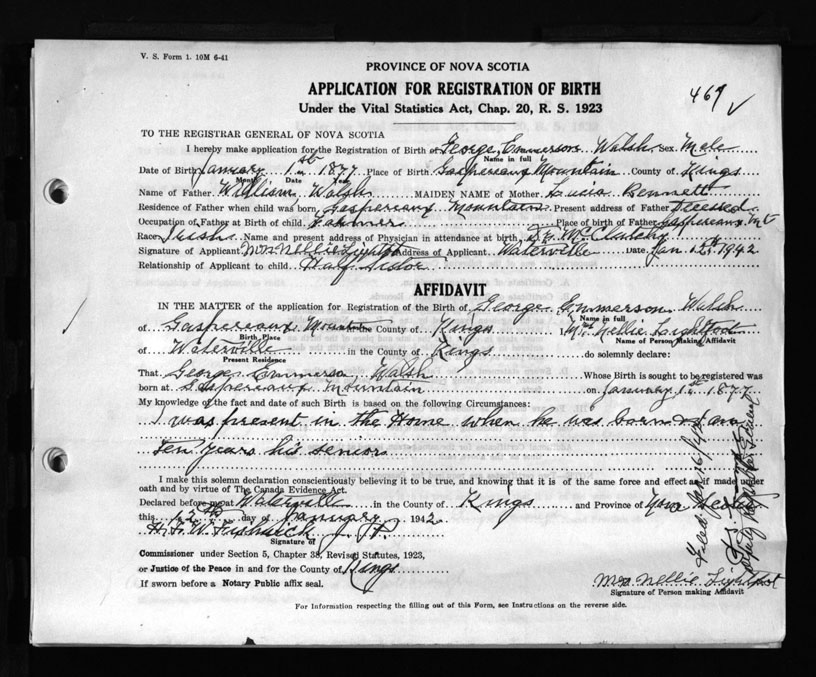 V. S. Form 1. 10M 6-41
PROVINCE OF NOVA SCOTIA
APPLICATION FOR REGISTRATION OF BIRTH
Under the Vital Statistics Act, Chap. 20, R. S. 1923
469 ✓
TO THE REGISTRAR GENERAL OF NOVA SCOTIA
I hereby make application for the Registration of Birth of George Emmerson Walsh Sex Male
Name in full
Date of Birth January 1st 1877 Place of Birth Gaspereaux Mountain County of Kings
Month Date Year
Name of Father William Walsh MAIDEN NAME of Mother Bennett
Residence of Father when child was born Gaspereaux Mountain Present address of Father
Occupation of Father at Birth of child Farmer Place of birth of Father Gaspereaux Mt
Race Irish Name and present address of Physician in attendance at birth, Dr.
Signature of Applicant Mrs Nellie Lightfoot Address of Applicant Waterville Date Jan. 12th 1942
Relationship of Applicant to child Half Sister
AFFIDAVIT
IN THE MATTER of the application for Registration of the Birth of George Emmerson Walsh
Name in full
of Gaspereaux Mountain in the County of Kings Mrs Nellie Lightfoot
Birth Place Name of Person Making Affidavit
of Waterville in the County of Kings do solemnly declare:
Present Residence
That George Emmerson Walsh Whose Birth is sought to be registered was
born at Gaspereaux Mountain on January 1st 1877
My knowledge of the fact and date of such Birth is based on the following Circumstances:
I was present in the Home when he was born & I am
ten years his senior
I make this solemn declaration conscientiously believing it to be true, and knowing that it is of the same force and effect as if made under
oath and by virtue of The Canada Evidence Act.
Declared before me at Waterville in the County of Kings and Province of Nova Scotia
this 12th day of January 1942
J. P.
Signature of
Commissioner under Section 5, Chapter 38, Revised Statutes, 1923,
or Justice of the Peace in and for the County of Kings
If sworn before a Notary Public affix seal.
Mrs Nellie Lightfoot
Signature of Person making Affidavit
For Information respecting the filling out of this Form, see Instructions on the reverse side.
Filed Jan 16/42
Deputy Registrar General